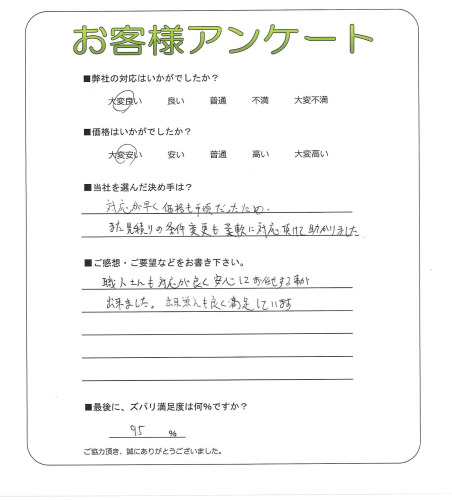 お客様アンケート
■弊社の対応はいかがでしたか？
大変良い 良い 普通 不満 大変不満
■価格はいかがでしたか？
大変安い 安い 普通 高い 大変高い
■当社を選んだ決め手は？
対応が早く価格も手頃だったため。
また見積りの条件変更も柔軟に対応頂けて助かりました
■ご感想・ご要望などをお書き下さい。
職人さんも対応が良く安心してお任せする事が
出来ました。出来栄えも良く満足しています
■最後に、ズバリ満足度は何%ですか？
95 %
ご協力頂き、誠にありがとうございました。